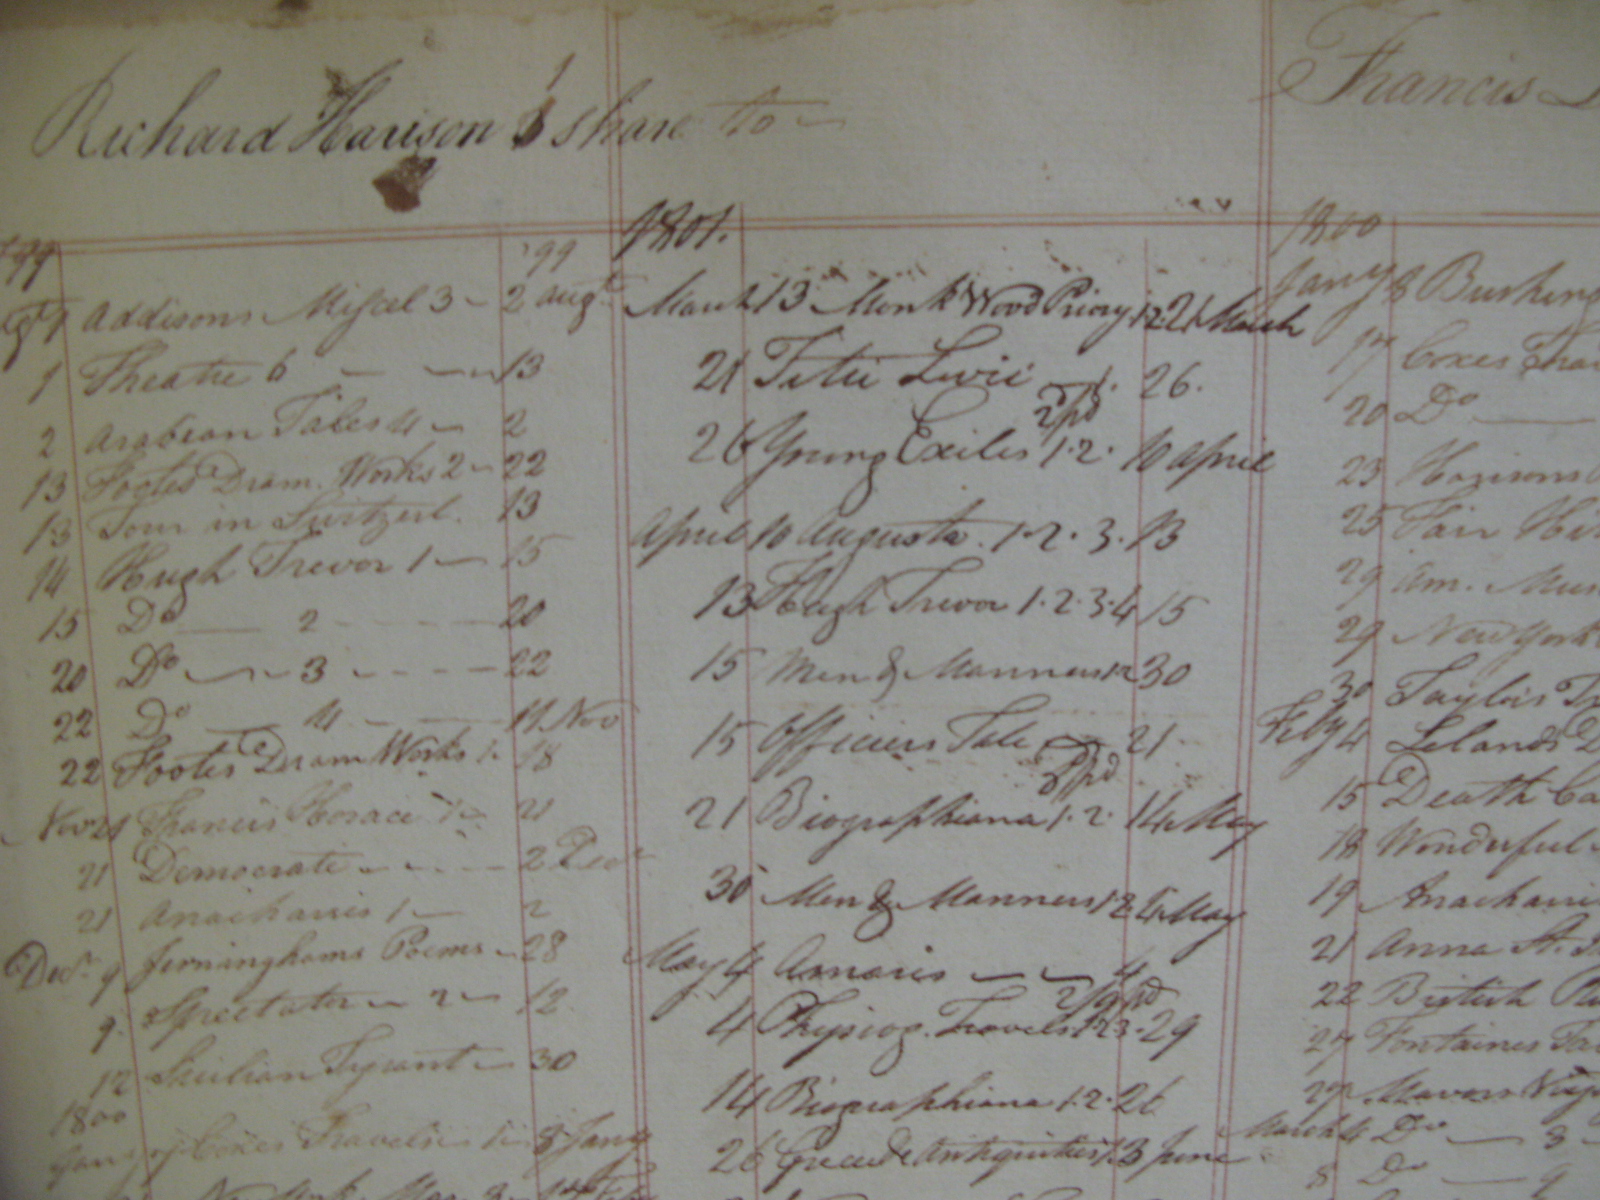 Richard Harison 1 share to
Francis
99
99
1 Addisons Miscel 3 - 2 Augt
1 Theatre 6 - - - 13
2 Arabian Tales 4 - 2
13 Footes Dram. Works 2 - 22
13 Tour in Switzerl. 13
14 Hugh Trevor 1 - 15
15 Do — 2 - - - - 20
20 Do - - 3 - - - - 22
22 Do — 4 - - 11 Nov
22 Footes Dram Works 1. 18
Nov 21 Francis Horace 1 - 21
21 Democrate - - - - 2 Decr
21 Anacharsis 1 - 2
Decr 9 Jerninghams Poems - 28
9. Spectator - 2 - 12
12 Sicilian Tyrant - 30
1800
Jany Coxes Travels 8 Jany
1801.
March 13 Monk Wood Priory 1.2. 21 March
21 Titii Livii 1. 26.
2/pd
26 Young Exiles 1.2. 10 April
April 10 Augusta. 1.2.3. 13
13 Hugh Trevor 1.2.3.4 15
15 Men & Manners 1.2 30
15 Officers Tale - 21.
pd
21 Biographiana 1.2. 14 May
30 Men & Manners 1.2 4 May
May 4 Amaris - - 4
2/9 pd
4 Physiog. Travels 1.2.3. 29
14 Biographiana 1.2. 26
26 Antiquities 1. 3 June
1800
Jany 8
17 Coxes
20 Do —
23 Harisons
25 Fair
29 Am.
29 New York
30 Taylors
Feby 4 Lelands
15 Death
18 Wonderful
19
21 Anna St.
22 British
27 Fontaines
27 Mavors
March 4 Do — 8
8 Do — 9